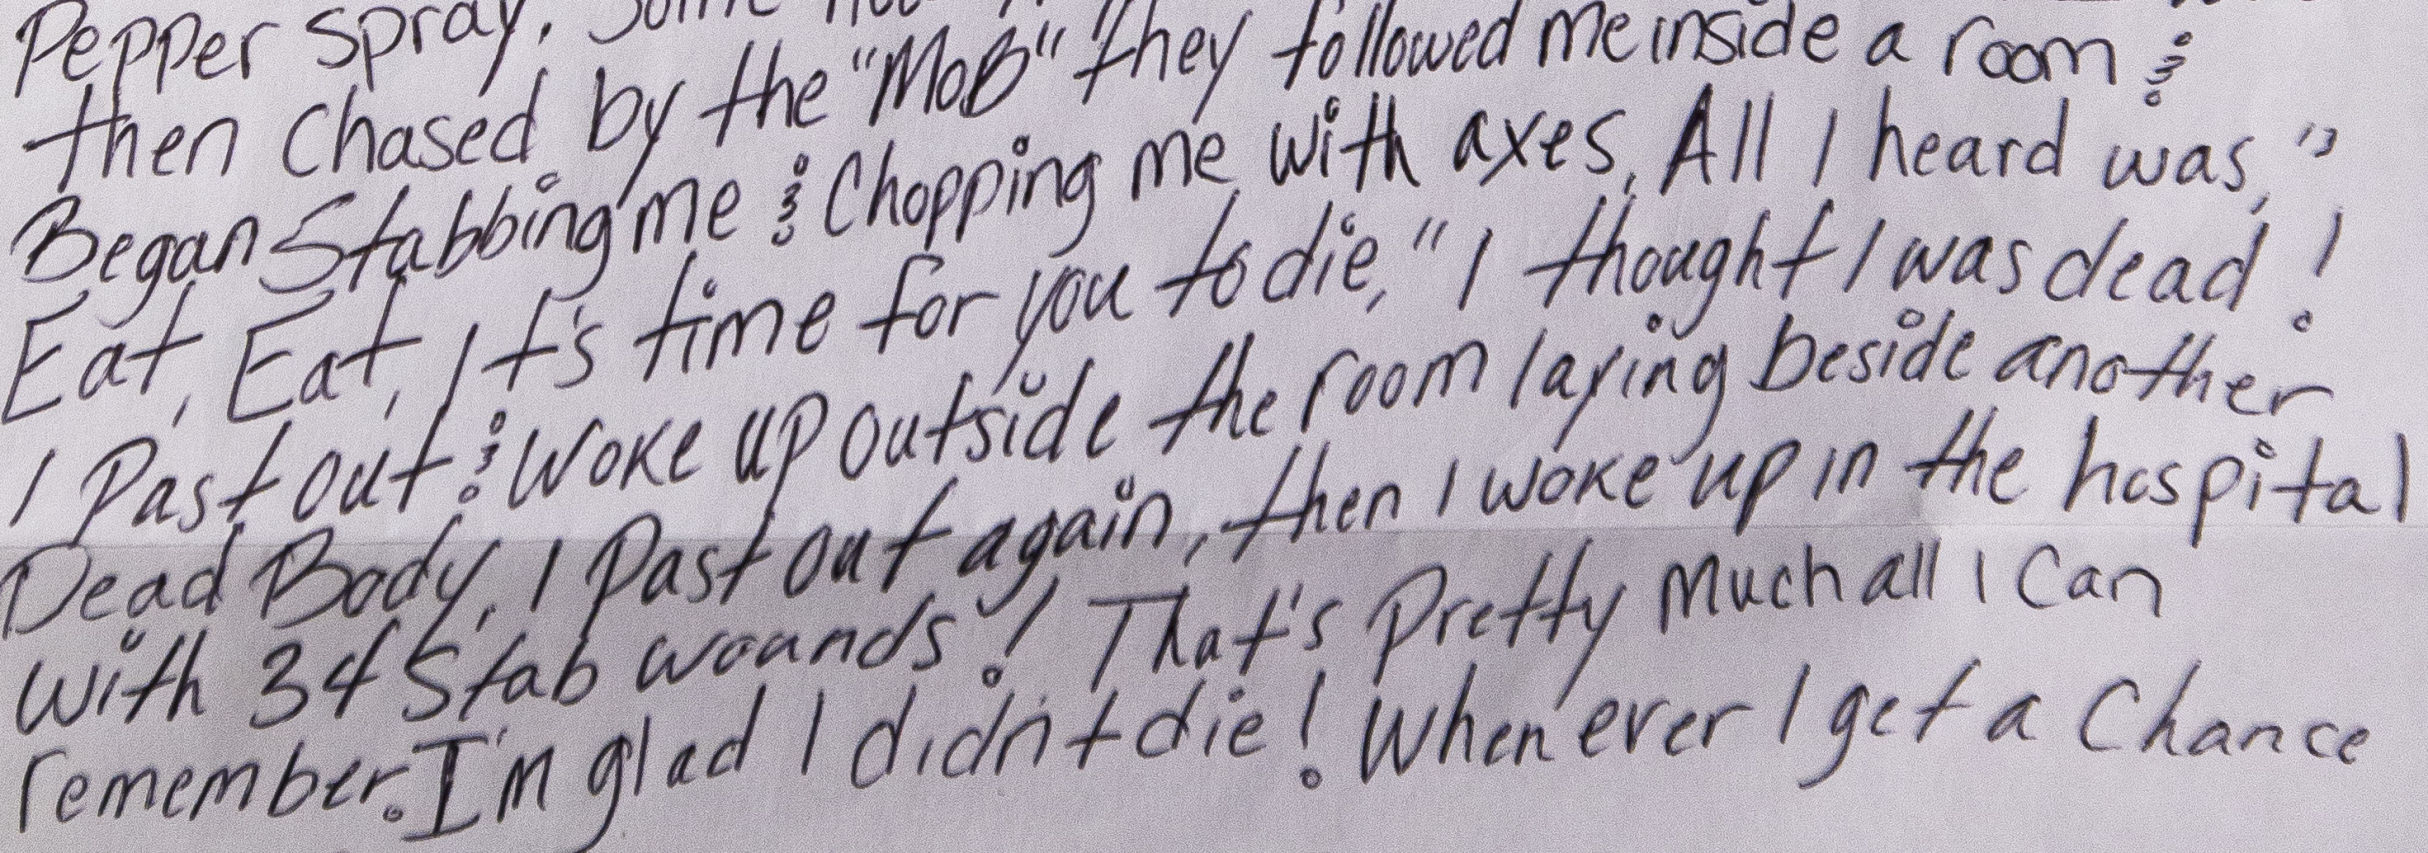 Pepper Spray,
then Chased by the "MOB" they followed me inside a room &
Began Stabbing me & Chopping me with axes, All I heard was, "
Eat, Eat, It's time for you to die," I thought I was dead!
I Past out & Woke up outside the room laying beside another
Dead Body, I Past out again, then I woke up in the hospital
with 34 Stab wounds! That's Pretty Much all I Can
remember. I'm glad I didn't die! When ever I get a Chance